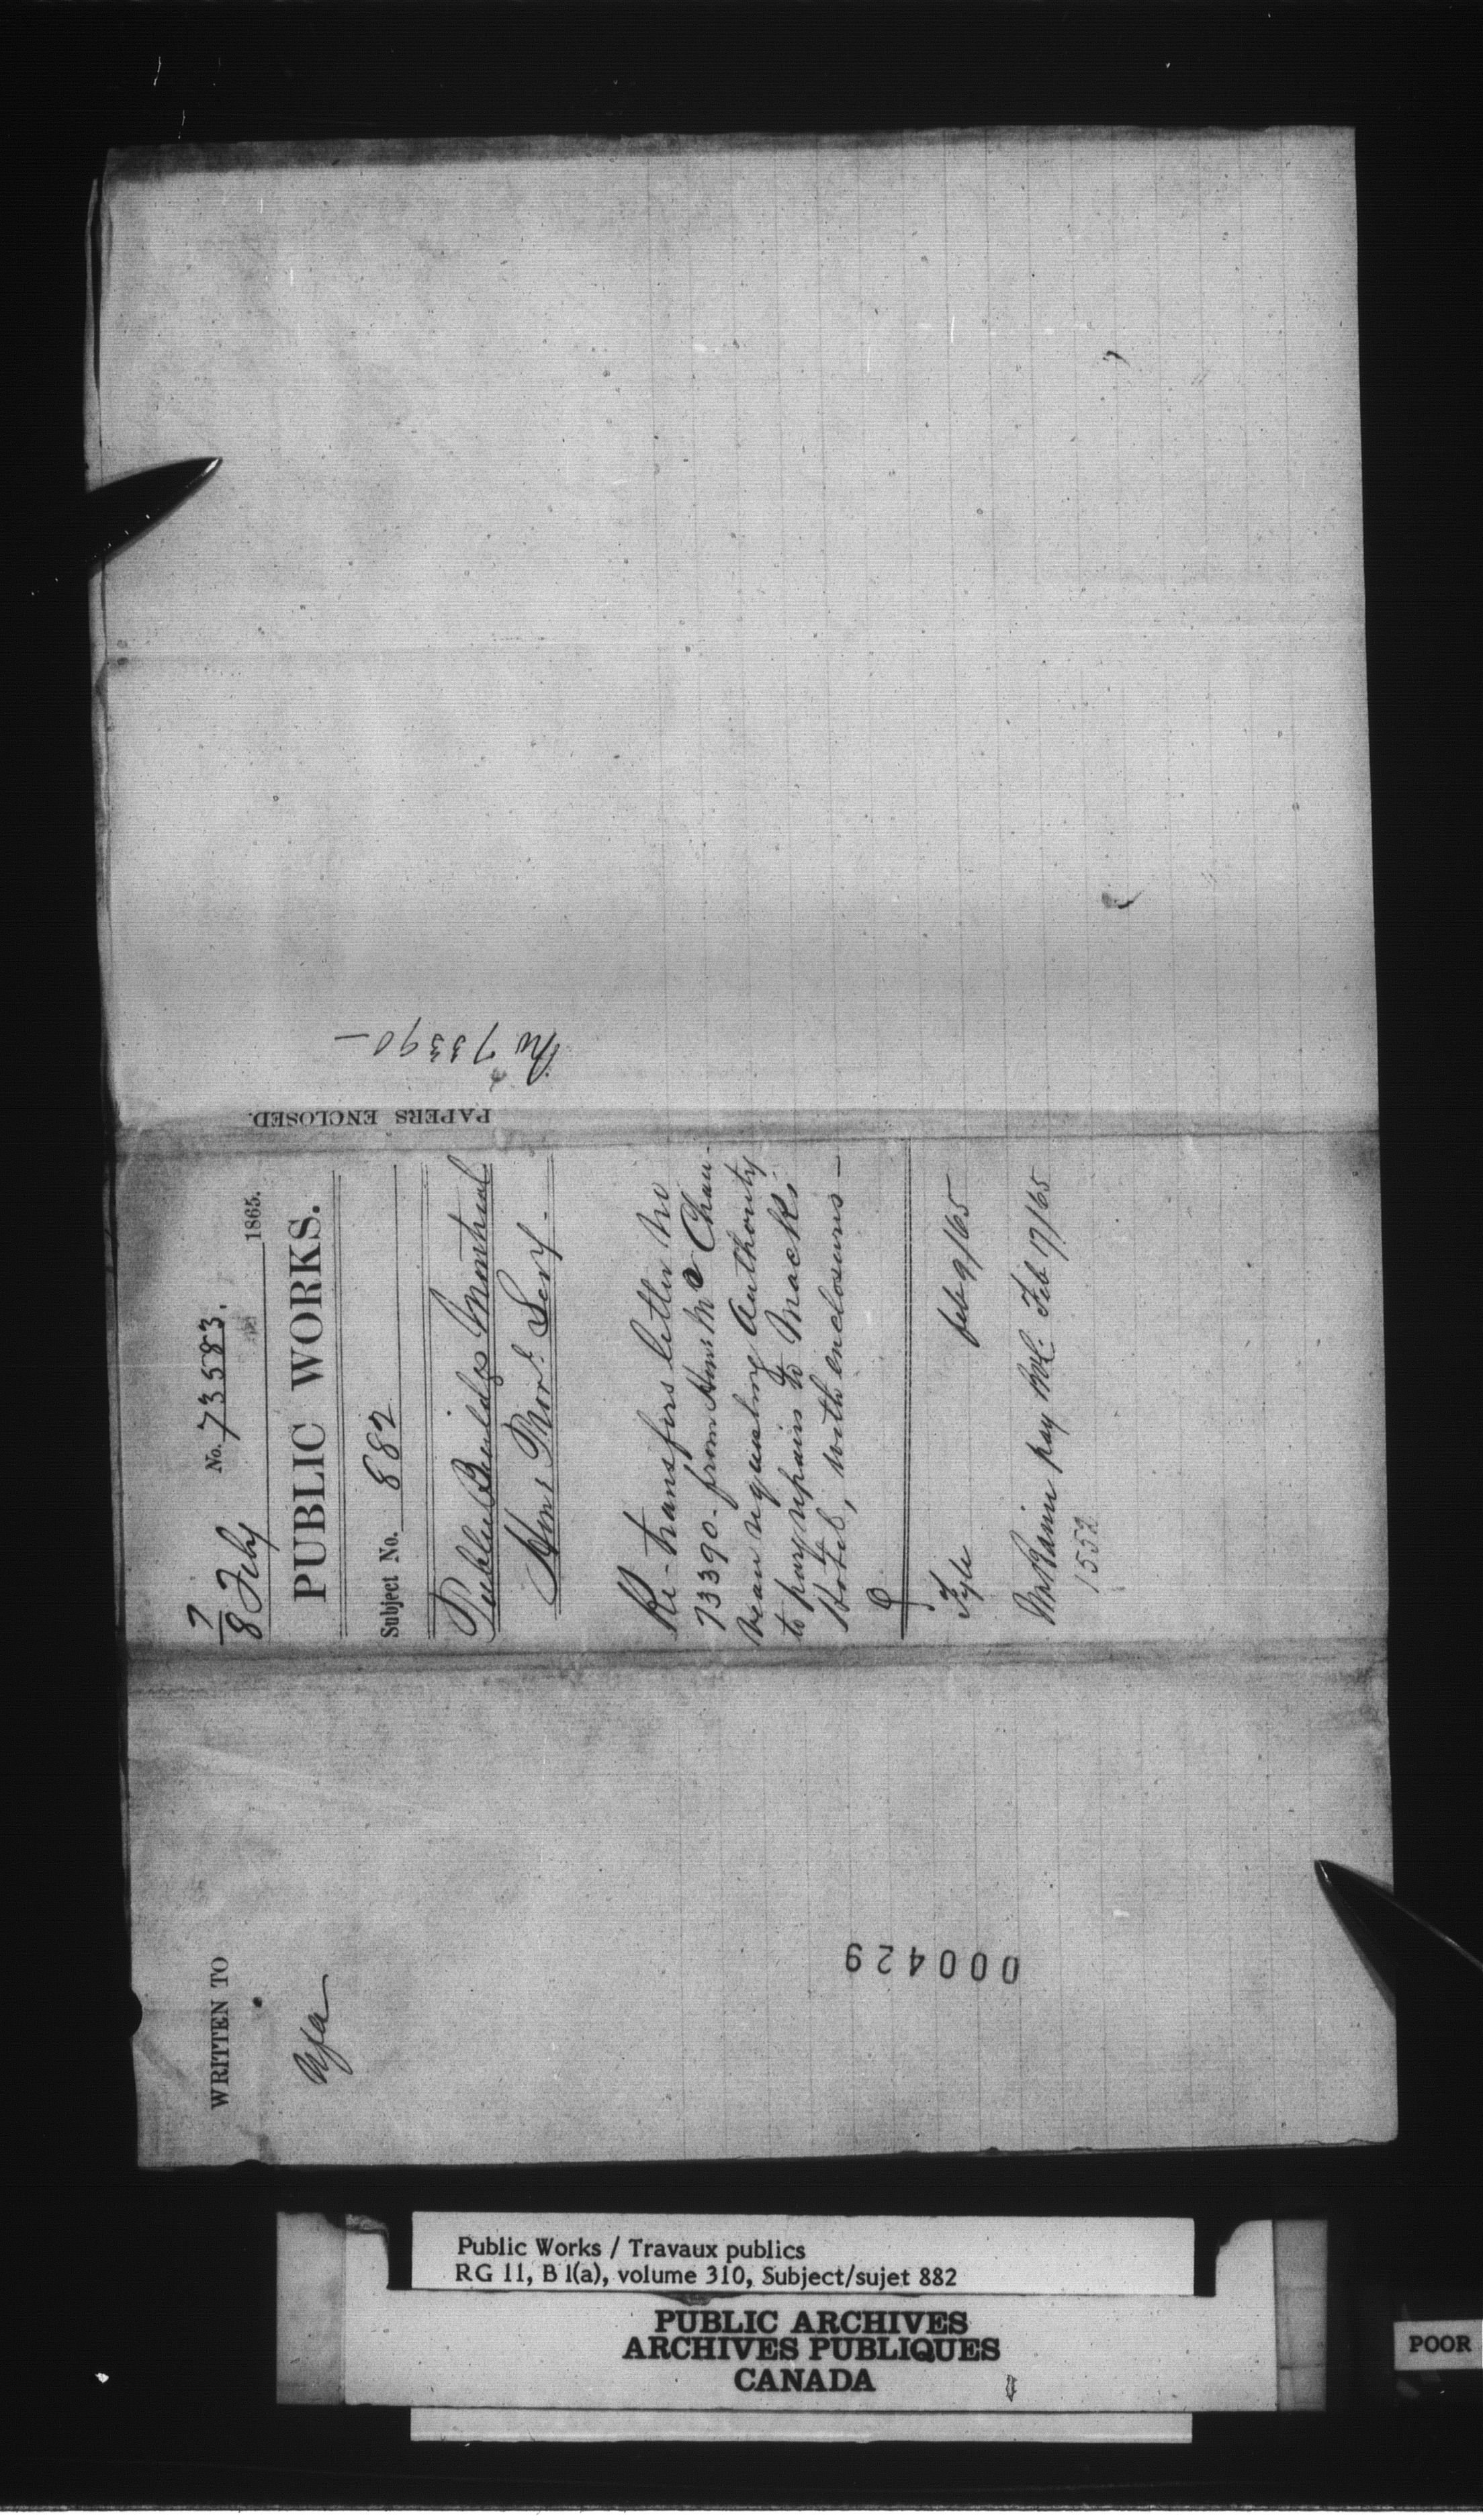 7
8 Feby No. 73583. 1865.
PUBLIC WORKS.
Subject No. 882
Public Buildgs Montreal
Hon: Prov.l Secy.
Re-transfers letter No
73390. from Hon: Mr Chau-
veau requesting Authority
to pay repairs to Mack's
Hotel, with enclosures —
Fyle Feb 9/65
pay Feb 17/65
1552
PAPERS ENCLOSED.
73390 —
WRITTEN TO
000429
Public Works / Travaux publics
RG 11, B 1(a), volume 310, Subject/sujet 882
PUBLIC ARCHIVES
ARCHIVES PUBLIQUES
CANADA
POOR